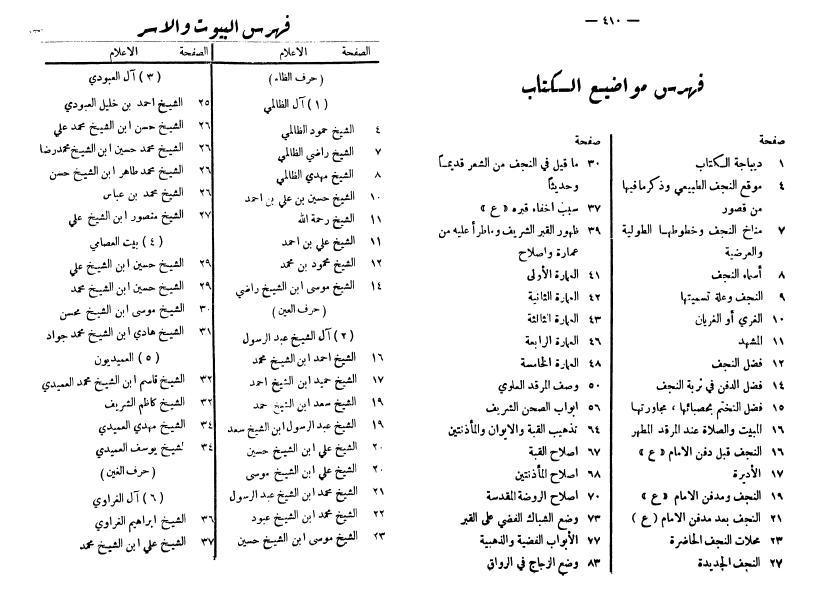 — ٤١٠ —
فهرس مواضيع الكتاب
صفحة
١ ديباجة الكتاب
٤ موقع النجف الطبيعي وذكر مافيها
من قصور
٧ مناخ النجف وخطوطها الطولية
والعرضية
٨ أسماء النجف
٩ النجف وعلة تسميتها
١٠ الغري أو الغريان
١١ المشهد
١٢ فضل النجف
١٤ فضل الدفن في تربة النجف
١٥ فضل التختم بحصبائها ، مجاورتها
١٦ المبيت والصلاة عند المرقد المطهر
١٦ النجف قبل دفن الامام « ع »
١٧ الأديرة
١٩ النجف ومدفن الامام « ع »
٢١ النجف بعد مدفن الامام ( ع )
٢٣ محلات النجف الحاضرة
٢٧ النجف الجديدة
صفحة
٣٠ ما قيل في النجف من الشعر قديماً
وحديثاً
٣٧ سبب اخفاء قبره « ع »
٣٩ ظهور القبر الشريف وماطرأ عليه من
عمارة واصلاح
٤١ العمارة الأولى
٤٢ العمارة الثانية
٤٣ العمارة الثالثة
٤٦ العمارة الرابعة
٤٨ العمارة الخامسة
٥٠ وصف المرقد العلوي
٥٦ ابواب الصحن الشريف
٦٤ تذهيب القبة والايوان والمأذنتين
٦٧ اصلاح القبة
٦٨ اصلاح المأذنتين
٧٠ اصلاح الروضة المقدسة
٧٣ وضع الشباك الفضي على القبر
٧٧ الأبواب الفضية والذهبية
٨٣ وضع الزجاج في الرواق
فهرس البيوت والاسر
الصفحة الاعلام
( حرف الظاء )
( ١ ) آل الظالمي
٤ الشيخ حمود الظالمي
٧ الشيخ راضي الظالمي
٨ الشيخ مهدي الظالمي
١٠ الشيخ حسين بن علي بن احمد
١١ الشيخ رحمة الله
١١ الشيخ علي بن احمد
١٢ الشيخ محمود بن محمد
١٤ الشيخ موسى ابن الشيخ راضي
( حرف العين )
( ٢ ) آل الشيخ عبد الرسول
١٦ الشيخ احمد ابن الشيخ محمد
١٧ الشيخ حميد ابن الشيخ احمد
١٩ الشيخ سعد ابن الشيخ حمد
١٩ الشيخ عبد الرسول ابن الشيخ سعد
٢٠ الشيخ علي ابن الشيخ حسين
٢٠ الشيخ علي ابن الشيخ موسى
٢١ الشيخ محمد ابن الشيخ عبد الرسول
٢٢ الشيخ محمد ابن الشيخ عبود
٢٣ الشيخ موسى ابن الشيخ حسين
الصفحة الاعلام
( ٣ ) آل العبودي
٢٥ الشيخ احمد بن خليل العبودي
٢٦ الشيخ حسن ابن الشيخ محمد علي
٢٦ الشيخ محمد حسين ابن الشيخ محمدرضا
٢٦ الشيخ محمد طاهر ابن الشيخ حسن
٢٦ الشيخ محمد بن عباس
٢٧ الشيخ منصور ابن الشيخ علي
( ٤ ) بيت العصامي
٢٩ الشيخ حسين ابن الشيخ علي
٢٩ الشيخ حسين ابن الشيخ محمد
٣٠ الشيخ موسى ابن الشيخ محسن
٣١ الشيخ هادي ابن الشيخ محمد جواد
( ٥ ) العميديون
٣٢ الشيخ قاسم ابن الشيخ محمد العميدي
٣٢ الشيخ كاظم الشريف
٣٤ الشيخ مهدي العميدي
٣٤ الشيخ يوسف العميدي
( حرف الغين )
( ٦ ) آل الغراوي
٣٦ الشيخ ابراهيم الغراوي
٣٧ الشيخ علي ابن الشيخ محمد